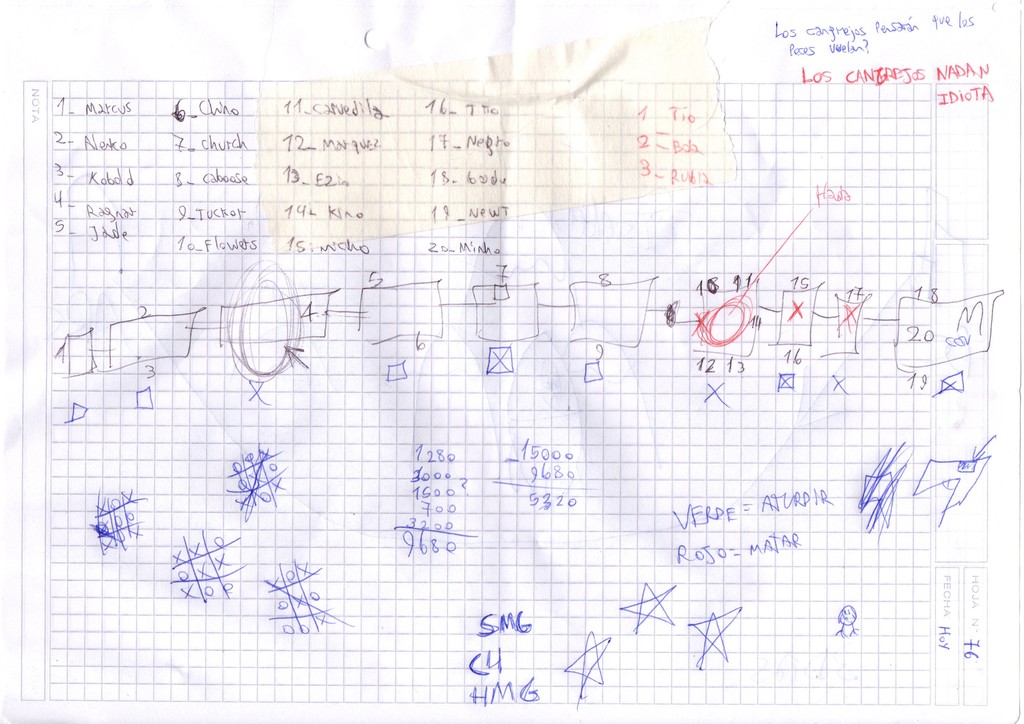 Los cangrejos Pensarán que los
Peces vuelan?
LOS CANGREJOS NADAN
IDIOTA
NOTA
1_ Marcus
6_ Chino
16_ Tito
1 Tio
2_
7_ Church
12_ Marquez
17_ Negro
2_
3_ Kobold
8_ Caboose
13_ Ezio
18_
3_ Rubia
4_ Ragnar
9_ Tucker
14_ Kino
19_ Newt
5_ Jade
10_ Flowers
15. Micho
20_ Minho
Hada
1 2 3 4 5 6 7 8 9 10 11 12 13 14 15 16 17 18 19 20
1280
3000
1500?
700
3200
9680
_15000
9680
5320
VERDE = ATURDIR
ROJO = MATAR
SMG
CH
HMG
HOJA N° 76
FECHA Hoy